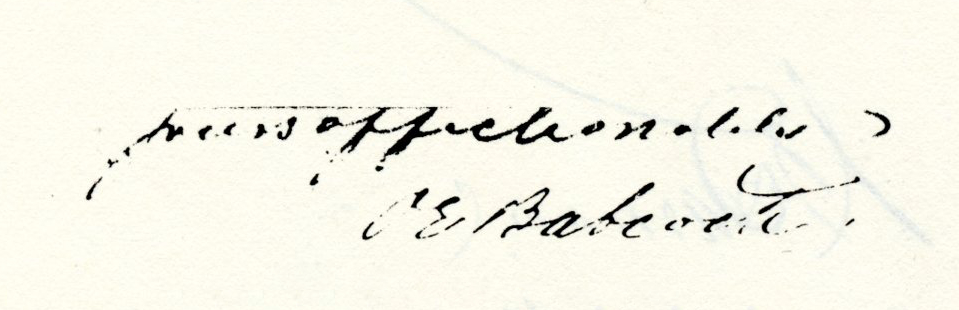 yours affectionately
E Babcock